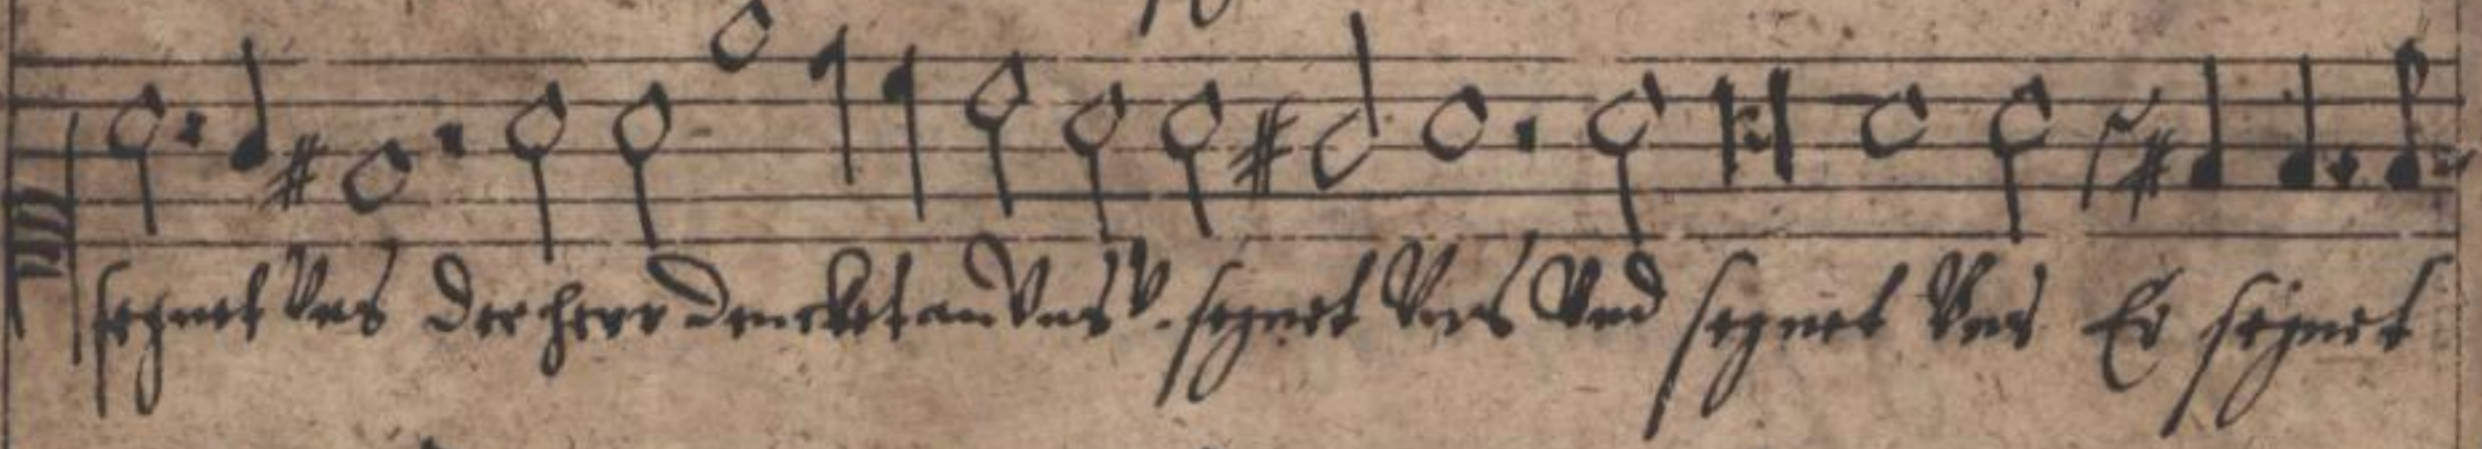 segnet Vns Der herr Dencket an Vns V. segnet Vns Vnd segnet Vns Er segnet